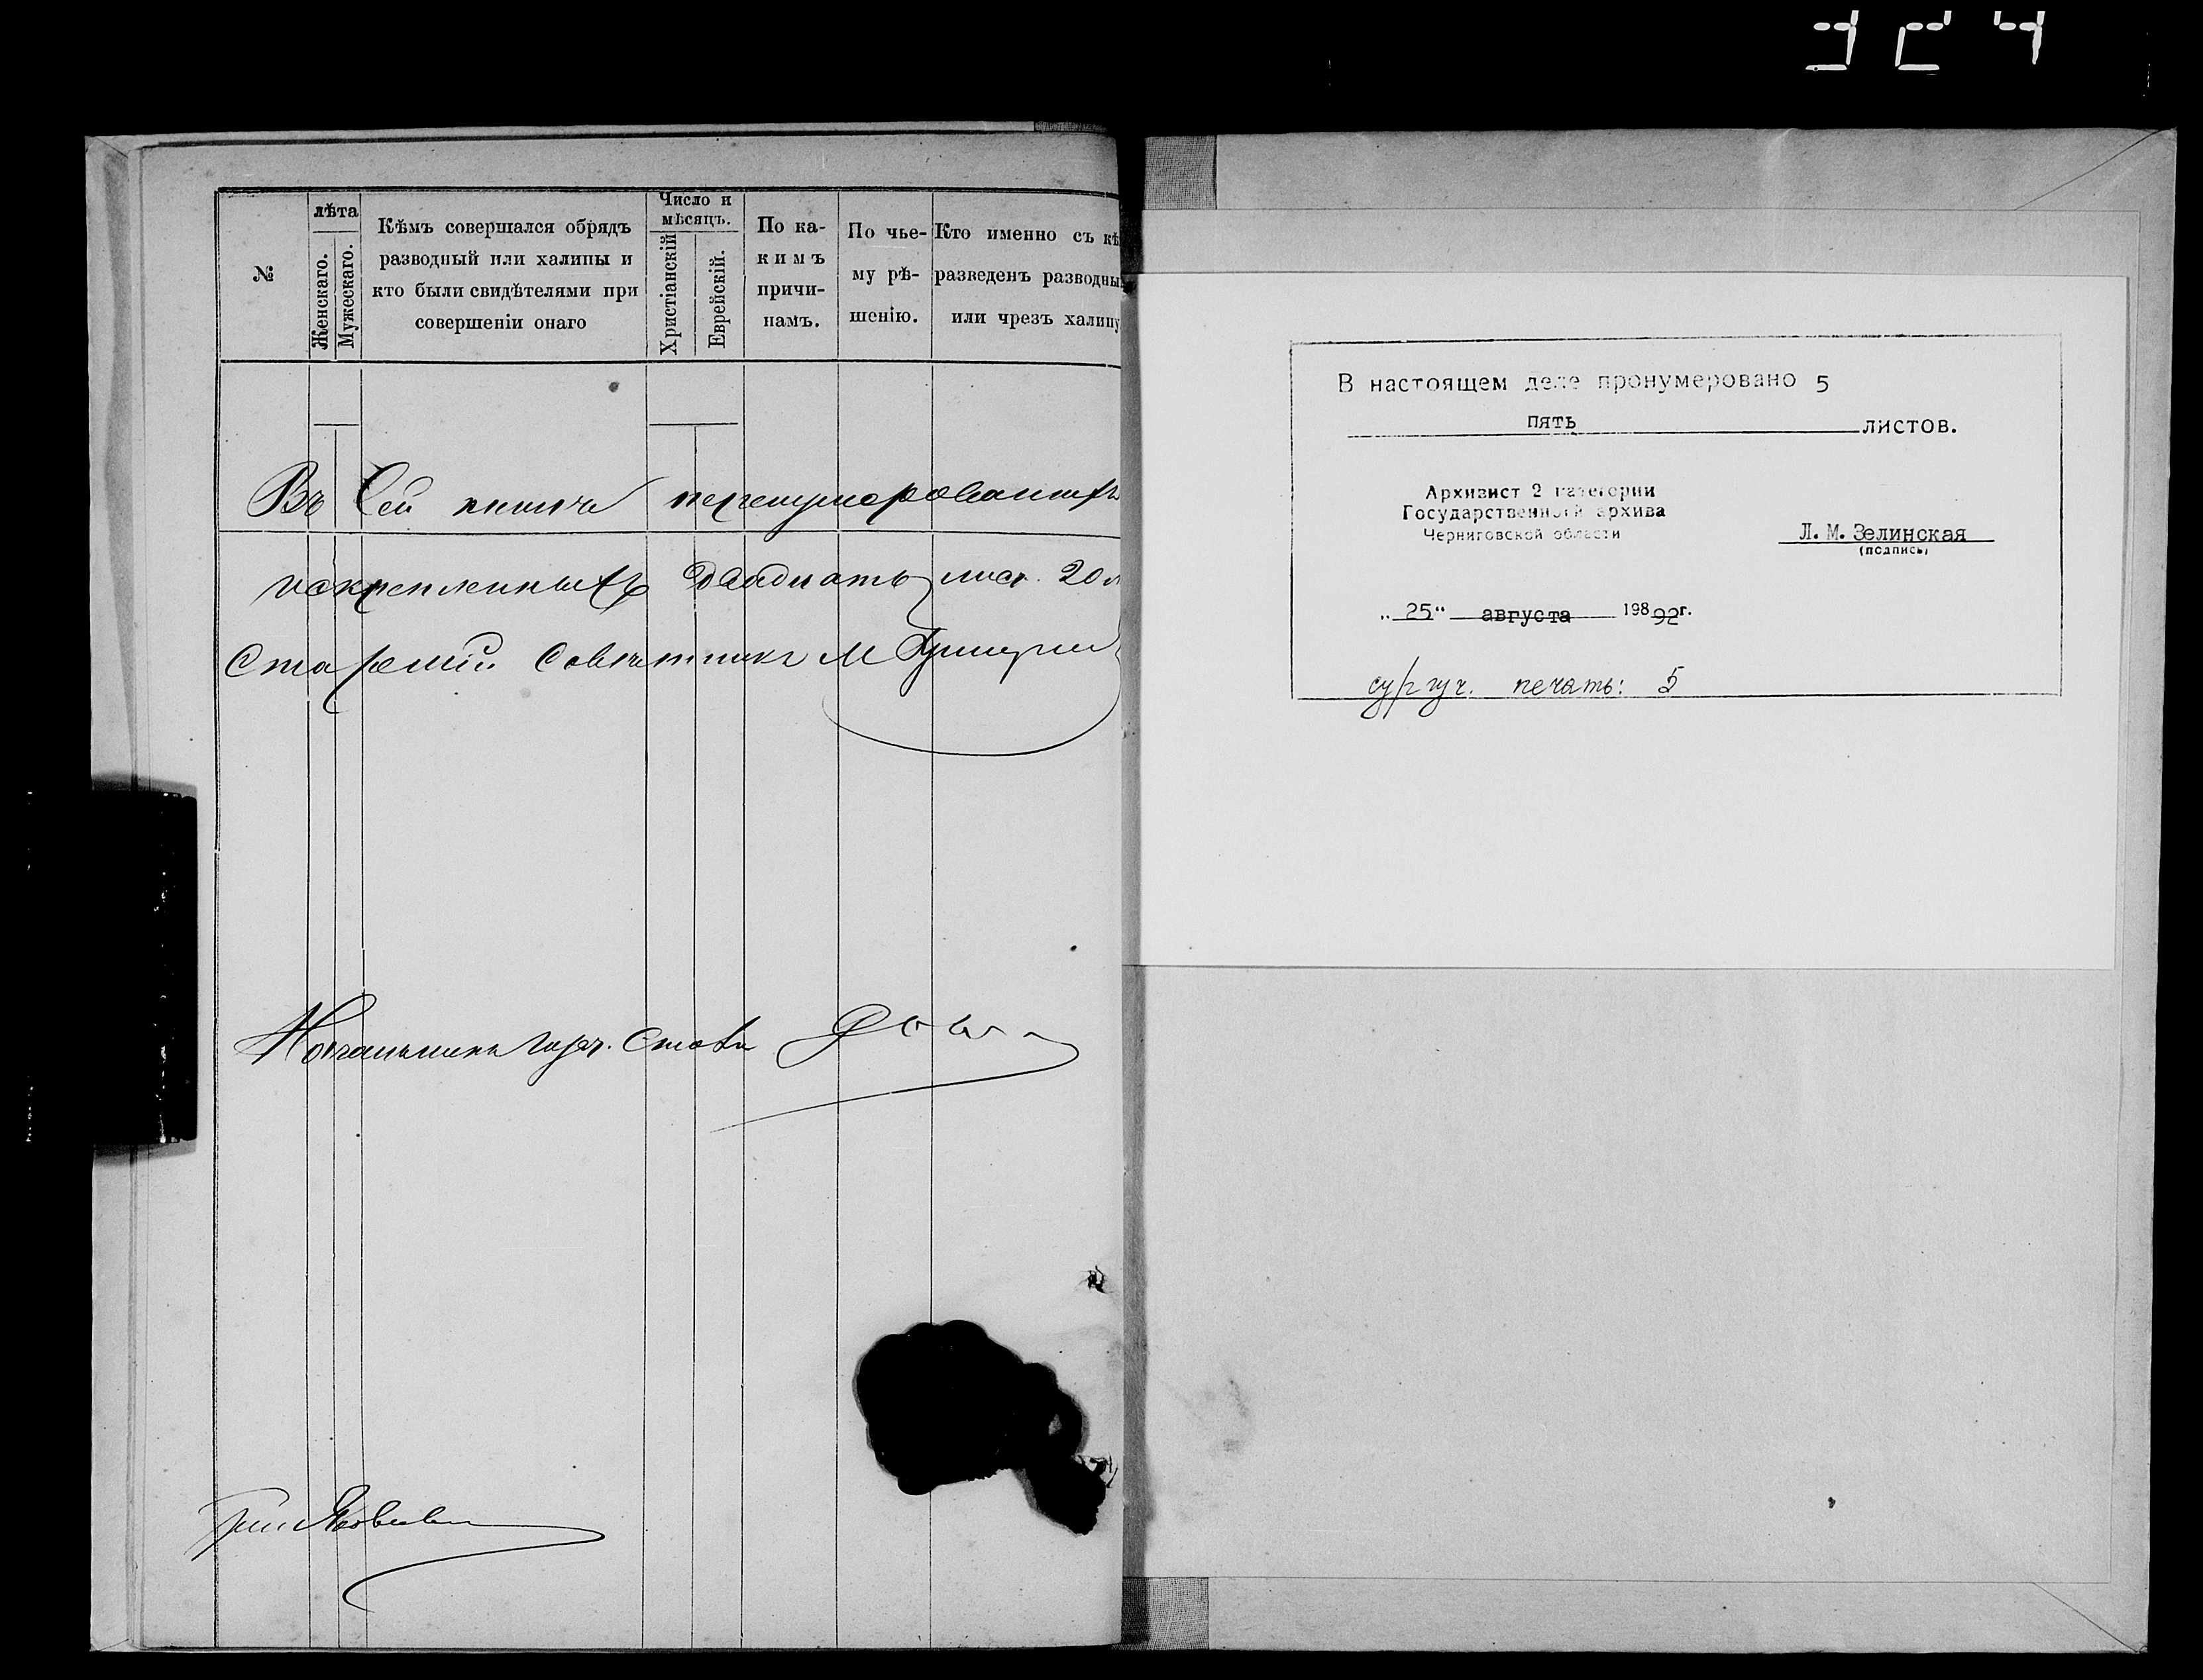 №
лѣта
Женскаго.
Мужескаго.
Кѣмъ совершался обрядъ
разводный или халицы и
кто были свидѣтелями при
совершеніи онаго
Число и
мѣсяцъ.
Христіанскій
Еврейскій.
По ка-
кимъ
причи-
намъ.
По чье-
му рѣ-
шенію.
Кто именно съ кѣ
разведенъ разводны
или чрезъ халицу
Въ Сей книгѣ перенумерованныхъ
искрепленныхъ двадцать лист. 20
Старшій Совѣтникъ М
Начальникъ Стола
В настоящем деле пронумеровано 5
пять листов.
Архивист 2 категории
Государственного архива
Черниговской области
Л. М. Зелинская
(подпись)
„ 25“ августа 198 92г.
сургуч. печать: 5